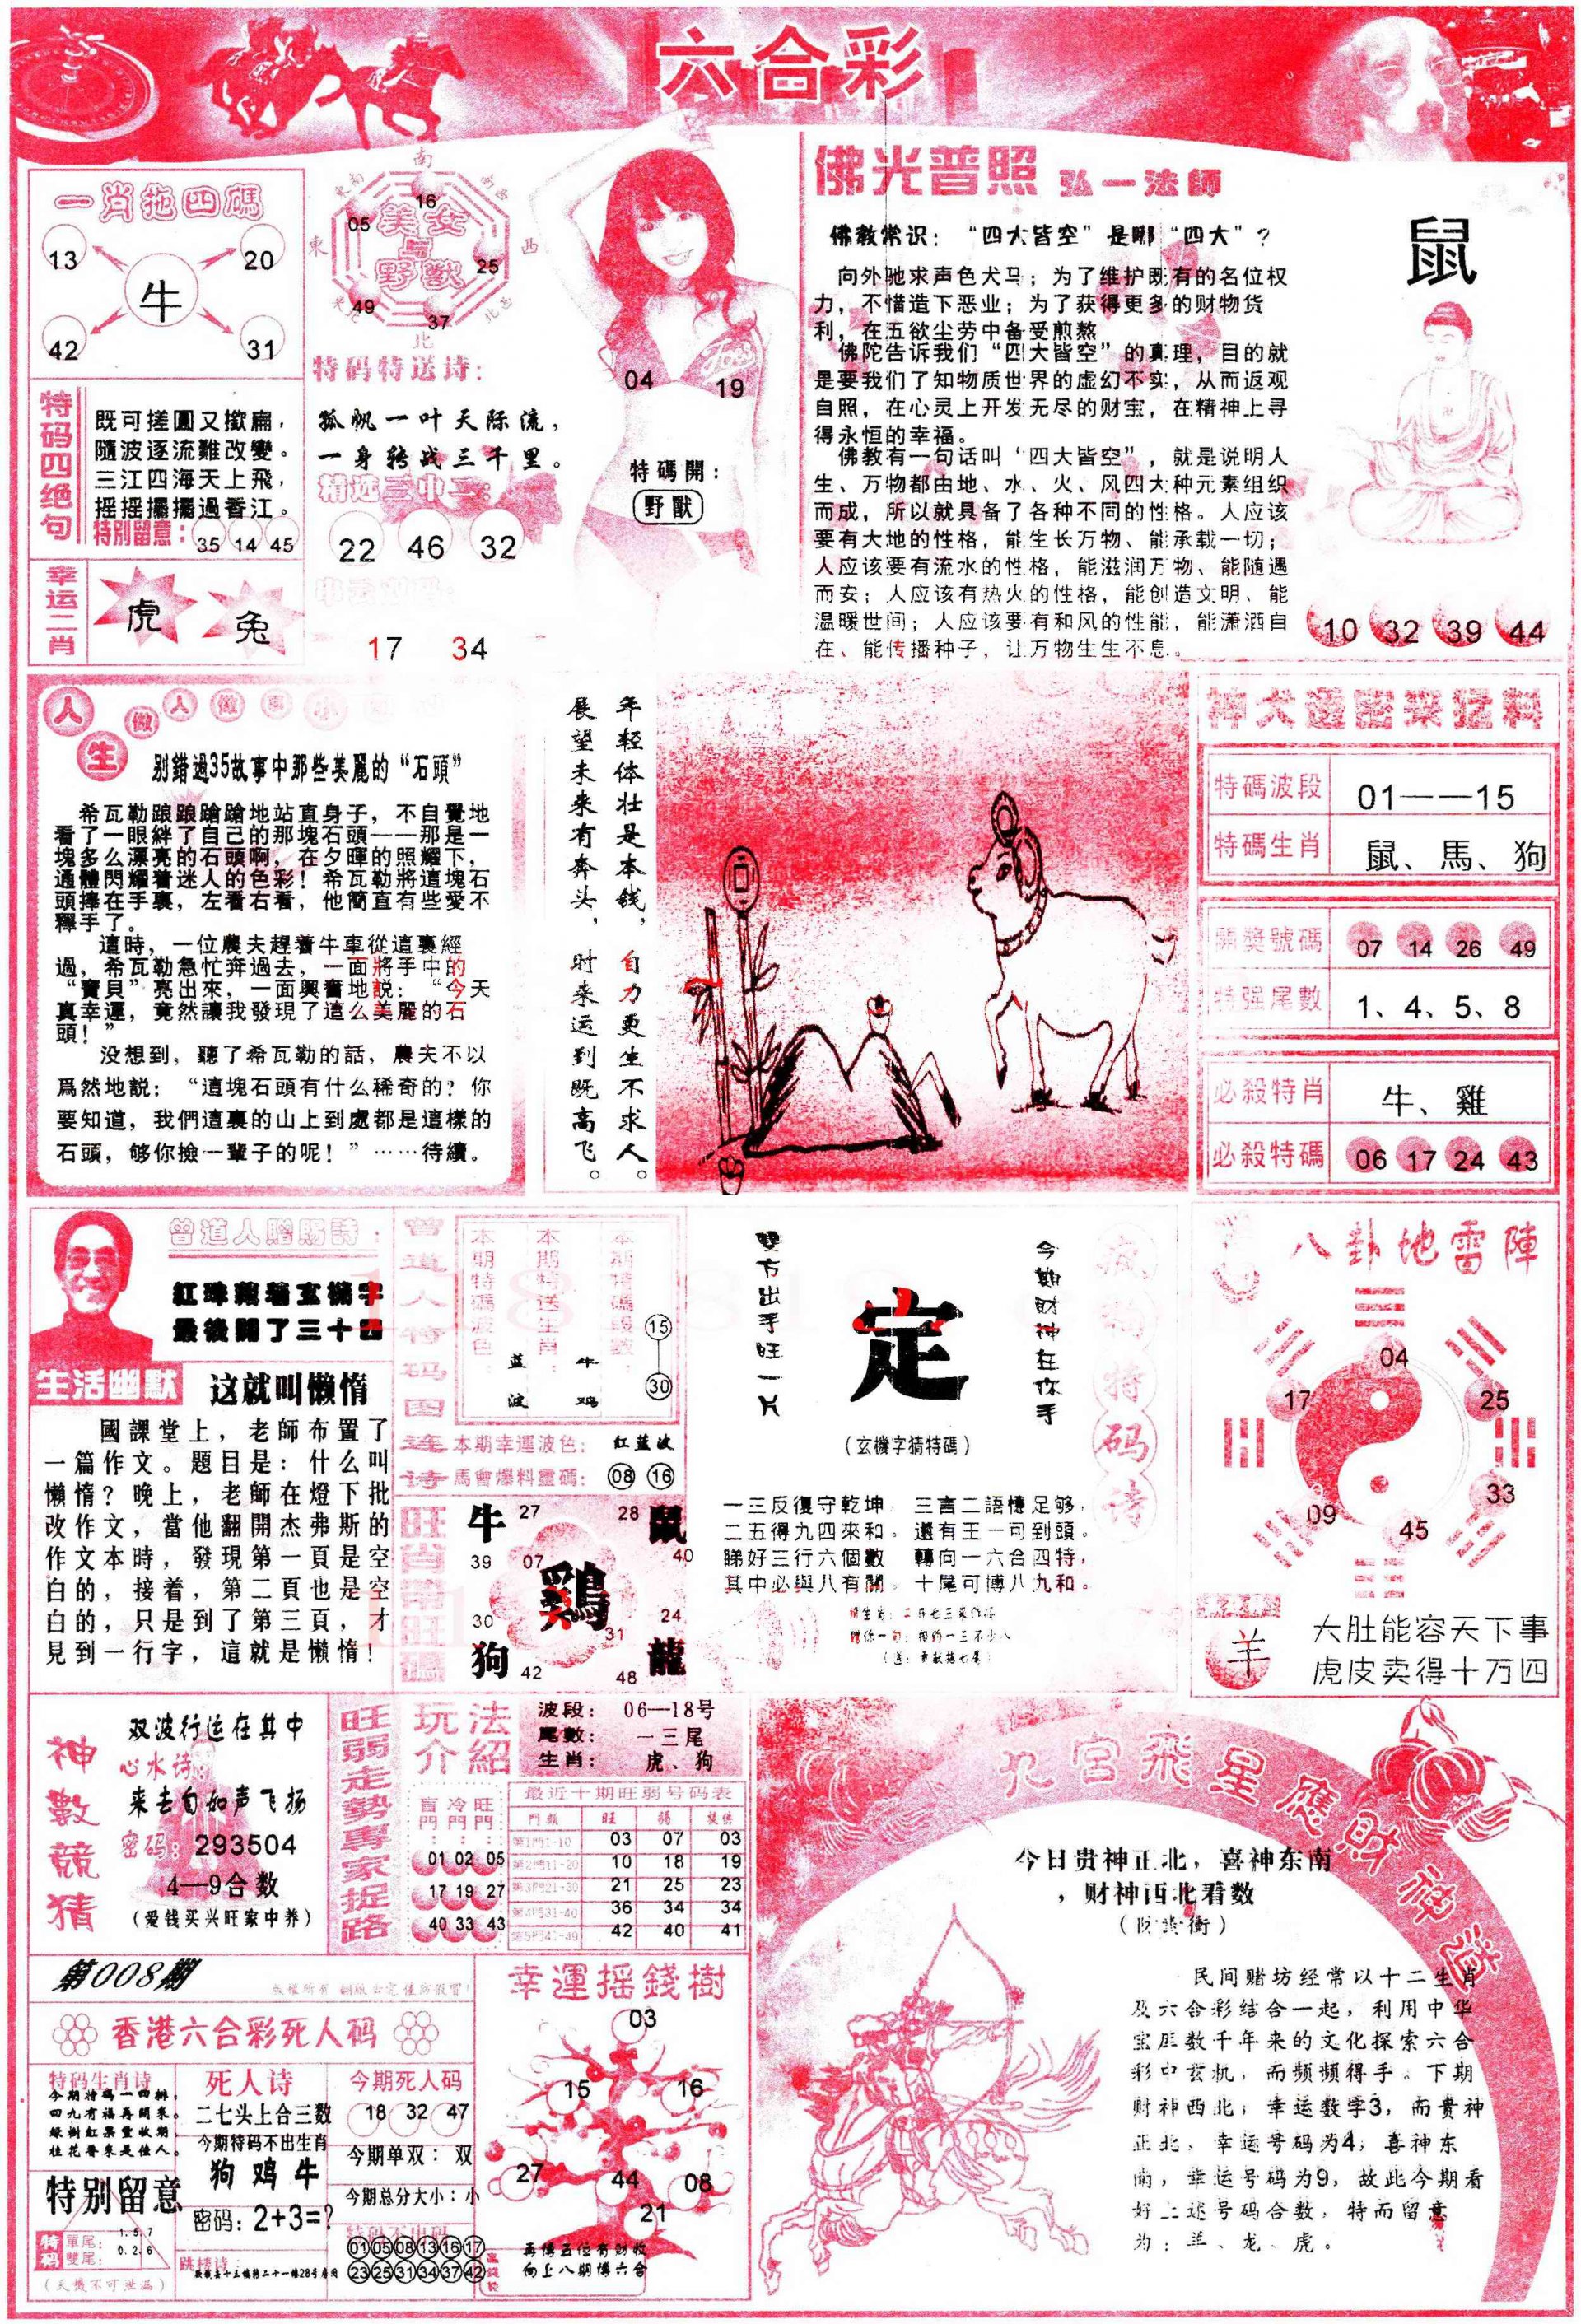 六合彩
一肖拖四碼
13
20
牛
42
31
南
16
05
美女
与
野獸
25
49
37
北
東
西
特码特送诗：
孤帆一叶天际流，
一身转战三千里。
精选三中二：
22 46 32
17 34
特码四绝句
既可搓圓又撳扁，
隨波逐流難改變。
三江四海天上飛，
摇摇擺擺過香江。
特別留意：35 14 45
幸运二肖
虎
兔
04
19
特碼開：
野獸
佛光普照 弘一法師
佛教常识：“四大皆空”是哪“四大”？
向外驰求声色犬马；为了维护既有的名位权
力，不惜造下恶业；为了获得更多的财物货
利，在五欲尘劳中备受煎熬
佛陀告诉我们“四大皆空”的真理，目的就
是要我们了知物质世界的虚幻不实，从而返观
自照，在心灵上开发无尽的财宝，在精神上寻
得永恒的幸福。
佛教有一句话叫‘四大皆空”，就是说明人
生、万物都由地、水、火、风四大种元素组织
而成，所以就具备了各种不同的性格。人应该
要有大地的性格，能生长万物、能承载一切；
人应该要有流水的性格，能滋润万物、能随遇
而安；人应该有热火的性格，能创造文明、能
温暖世间；人应该要有和风的性能，能潇洒自
在、能传播种子，让万物生生不息。
鼠
10 32 39 44
人生
做人做事小
别錯過35故事中那些美麗的“石頭”
希瓦勒踉踉蹌蹌地站直身子，不自覺地
看了一眼絆了自己的那塊石頭——那是一
塊多么漂亮的石頭啊，在夕暉的照耀下，
通體閃耀着迷人的色彩！希瓦勒將這塊石
頭捧在手裏，左看右看，他簡直有些愛不
釋手了。
這時，一位農夫趕着牛車從這裏經
過，希瓦勒急忙奔過去，一面將手中的
“寶貝”亮出來，一面興奮地説：“今天
真幸運，竟然讓我發現了這么美麗的石
頭！”
没想到，聽了希瓦勒的話，農夫不以
爲然地説：“這塊石頭有什么稀奇的？你
要知道，我們這裏的山上到處都是這樣的
石頭，够你撿一輩子的呢！”……待續。
年轻体壮是本钱，自力更生不求人。
展望未来有奔头，时来运到既高飞。
神犬邊密來猛料
特碼波段 01——15
特碼生肖 鼠、馬、狗
開獎號碼 07 14 26 49
特强尾數 1、4、5、8
必殺特肖 牛、雞
必殺特碼 06 17 24 43
曾道人贈賜詩：
紅珠藏猪玄機字
最後開了三十四
生活幽默 这就叫懒惰
國課堂上，老師布置了
一篇作文。題目是：什么叫
懶惰？晚上，老師在燈下批
改作文，當他翻開杰弗斯的
作文本時，發現第一頁是空
白的，接着，第二頁也是空
白的，只是到了第三頁，才
見到一行字，這就是懶惰！
曾道人特码图连诗
本期特碼波色：
蓝波
本期特送生肖：
牛鸡
本期特碼段數：
15
30
本期幸運波色：红蓝波
馬會爆料靈碼：08 16
牛 27 28 鼠
39 07 40
鷄
30 31 24
狗 42 48 龍
雙方出手旺一片
定
今期財神在你手
（玄機字猜特碼）
一三反復守乾坤， 三言二語憶足够，
二五得九四來和。 還有王一司到頭。
睇好三行六個數 轉向一六合四特，
其中必與八有關。 十尾可博八九和。
八卦地雷陣
04
17
25
09
33
45
羊
大肚能容天下事
虎皮卖得十万四
神數競猜
双波行运在其中
心水诗：
来去自如声飞扬
密码：293504
4—9合数
（爱钱买兴旺家中养）
旺弱走勢專家捉路
玩法介紹
波段： 06—18号
尾數： 一三尾
生肖： 虎、狗
盲門： 冷門： 旺門：
01 02 05
17 19 27
40 33 43
最近十期旺弱号码表
門類 旺 弱 提供
第1門1-10 03 07 03
第2門11-20 10 18 19
第3門21-30 21 25 23
第4門31-40 36 34 34
第5門41-49 42 40 41
九宫飛星應財神送
今日贵神正北，喜神东南
，财神西北看数
民间赌坊经常以十二生肖
及六合彩结合一起，利用中华
宝庄数千年来的文化探索六合
彩中玄机，而频频得手。下期
财神西北，幸运数字3，而贵神
正北，幸运号码为4，喜神东
南，幸运号码为9，故此今期看
好上述号码合数，特而留意
为：羊、龙、虎。
第008期
香港六合彩死人码
特码生肖诗
今期特码一四排，
四九有福再開来。
绿樹紅果豊收期，
桂花香来是佳人。
特别留意
特码
單尾：1. 5. 7
雙尾：0. 2. 6
（天機不可泄漏）
死人诗
二七头上合三数
今期特码不出生肖
狗 鸡 牛
密码：2+3=?
今期死人码
18 32 47
今期单双：双
今期总分大小：小
特码不中码
01 05 08 13 16 17
23 25 31 34 37 42
幸運摇錢樹
03
15
16
27
44
08
21
再博五位有财收
向上八期博六合